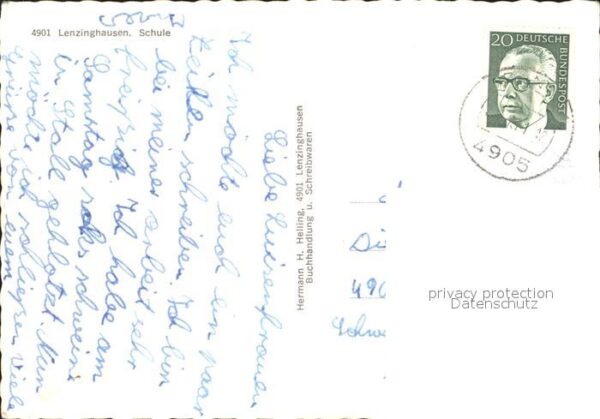 4901 Lenzinghausen, Schule
Liebe
Ich möchte euch ein paar
Zeilen schreiben. Ich bin
bei meiner arbeit sehr
freizig. Ich habe am
Samstag sechs schweine
in Stall geklotzt. Nun
möchte ich schließen viele
Grüße von
Hermann H. Helling, 4901 Lenzinghausen
Buchhandlung u. Schreibwaren
20 DEUTSCHE BUNDESPOST
4905
Di
490
Schwe
privacy protection
Datenschutz